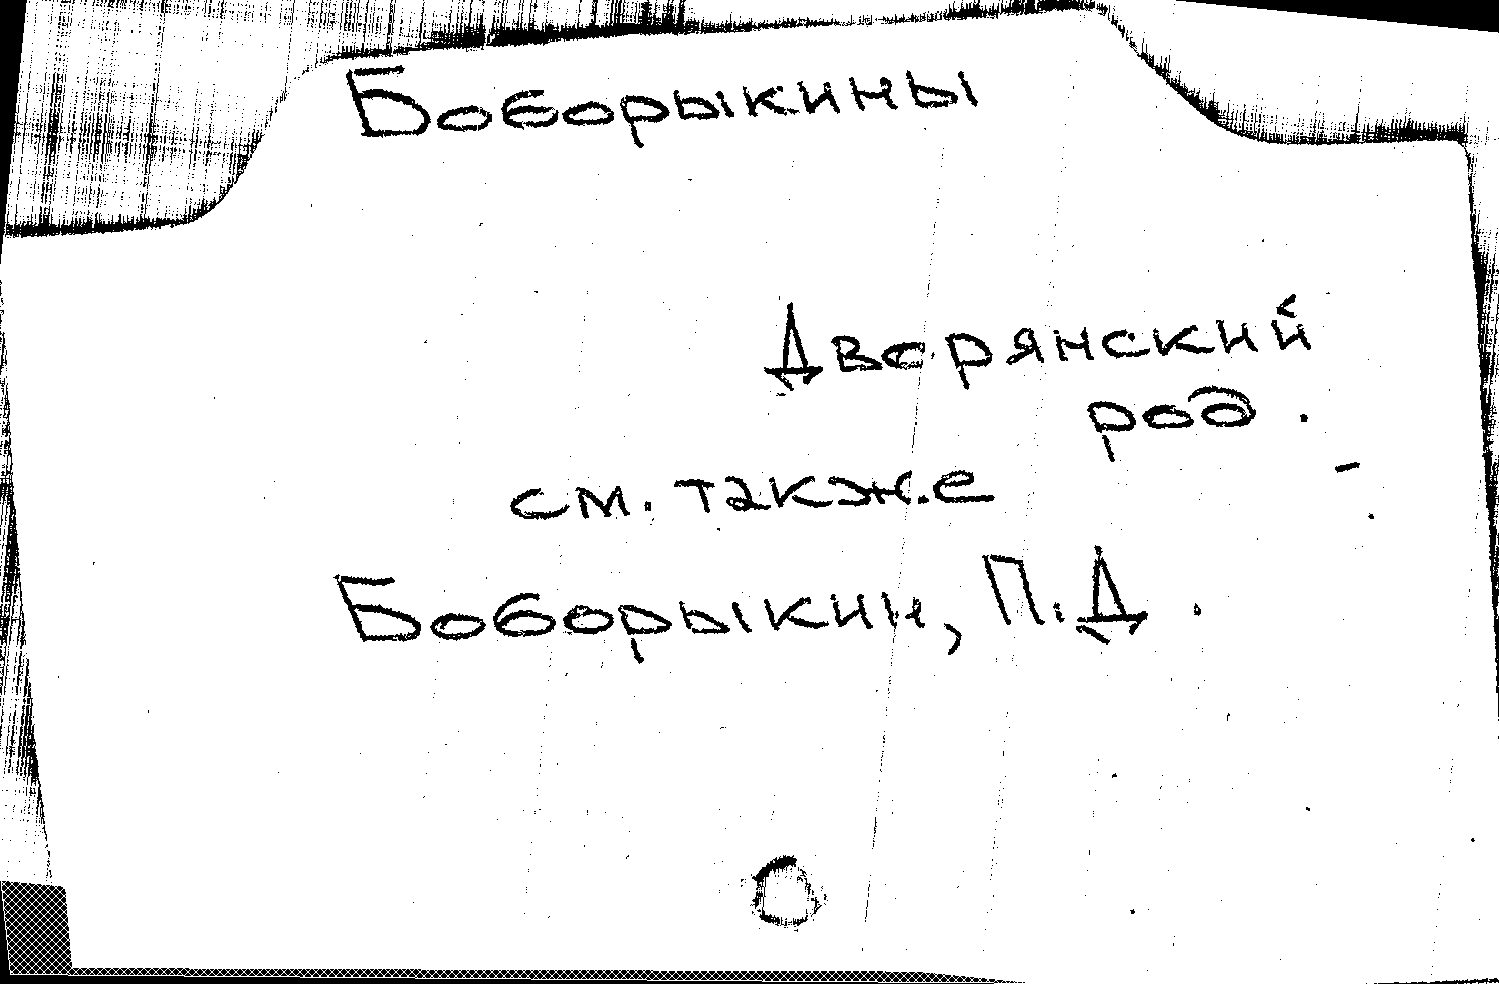 Боборыкины
Дворянский
род.
см. также
Боборыкин, П.Д.